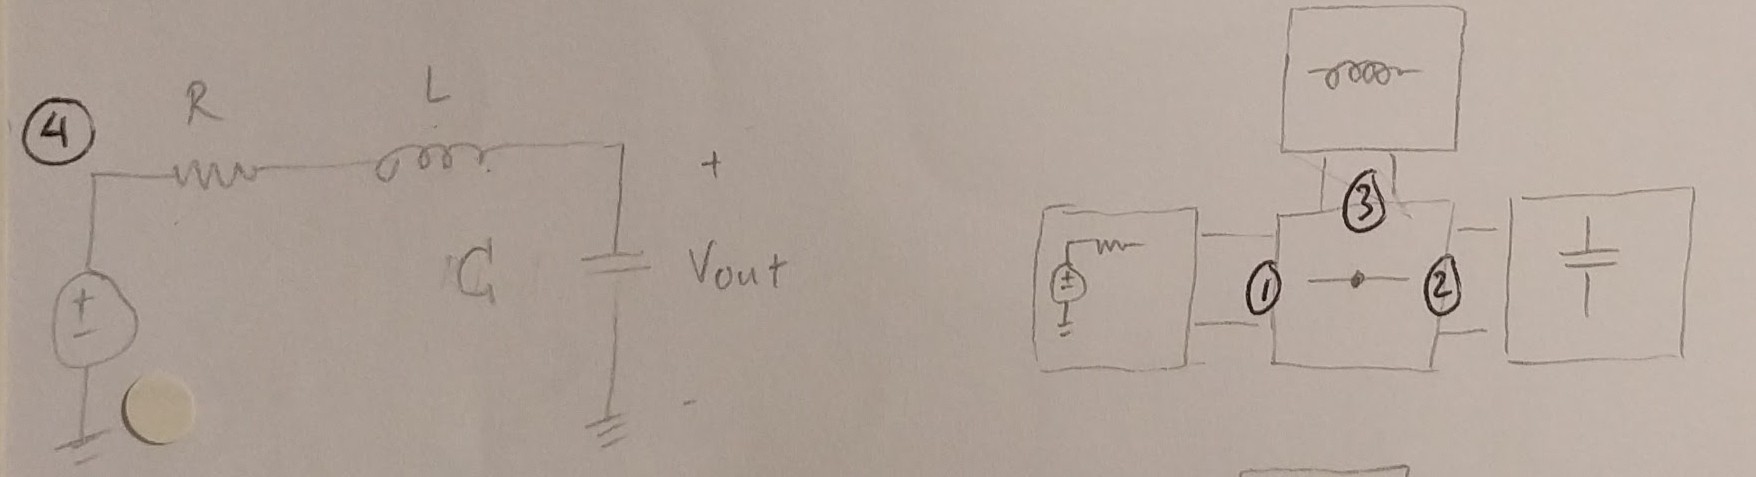 4
R
L
+
C
Vout
-
+
-
3
1
2
+
-